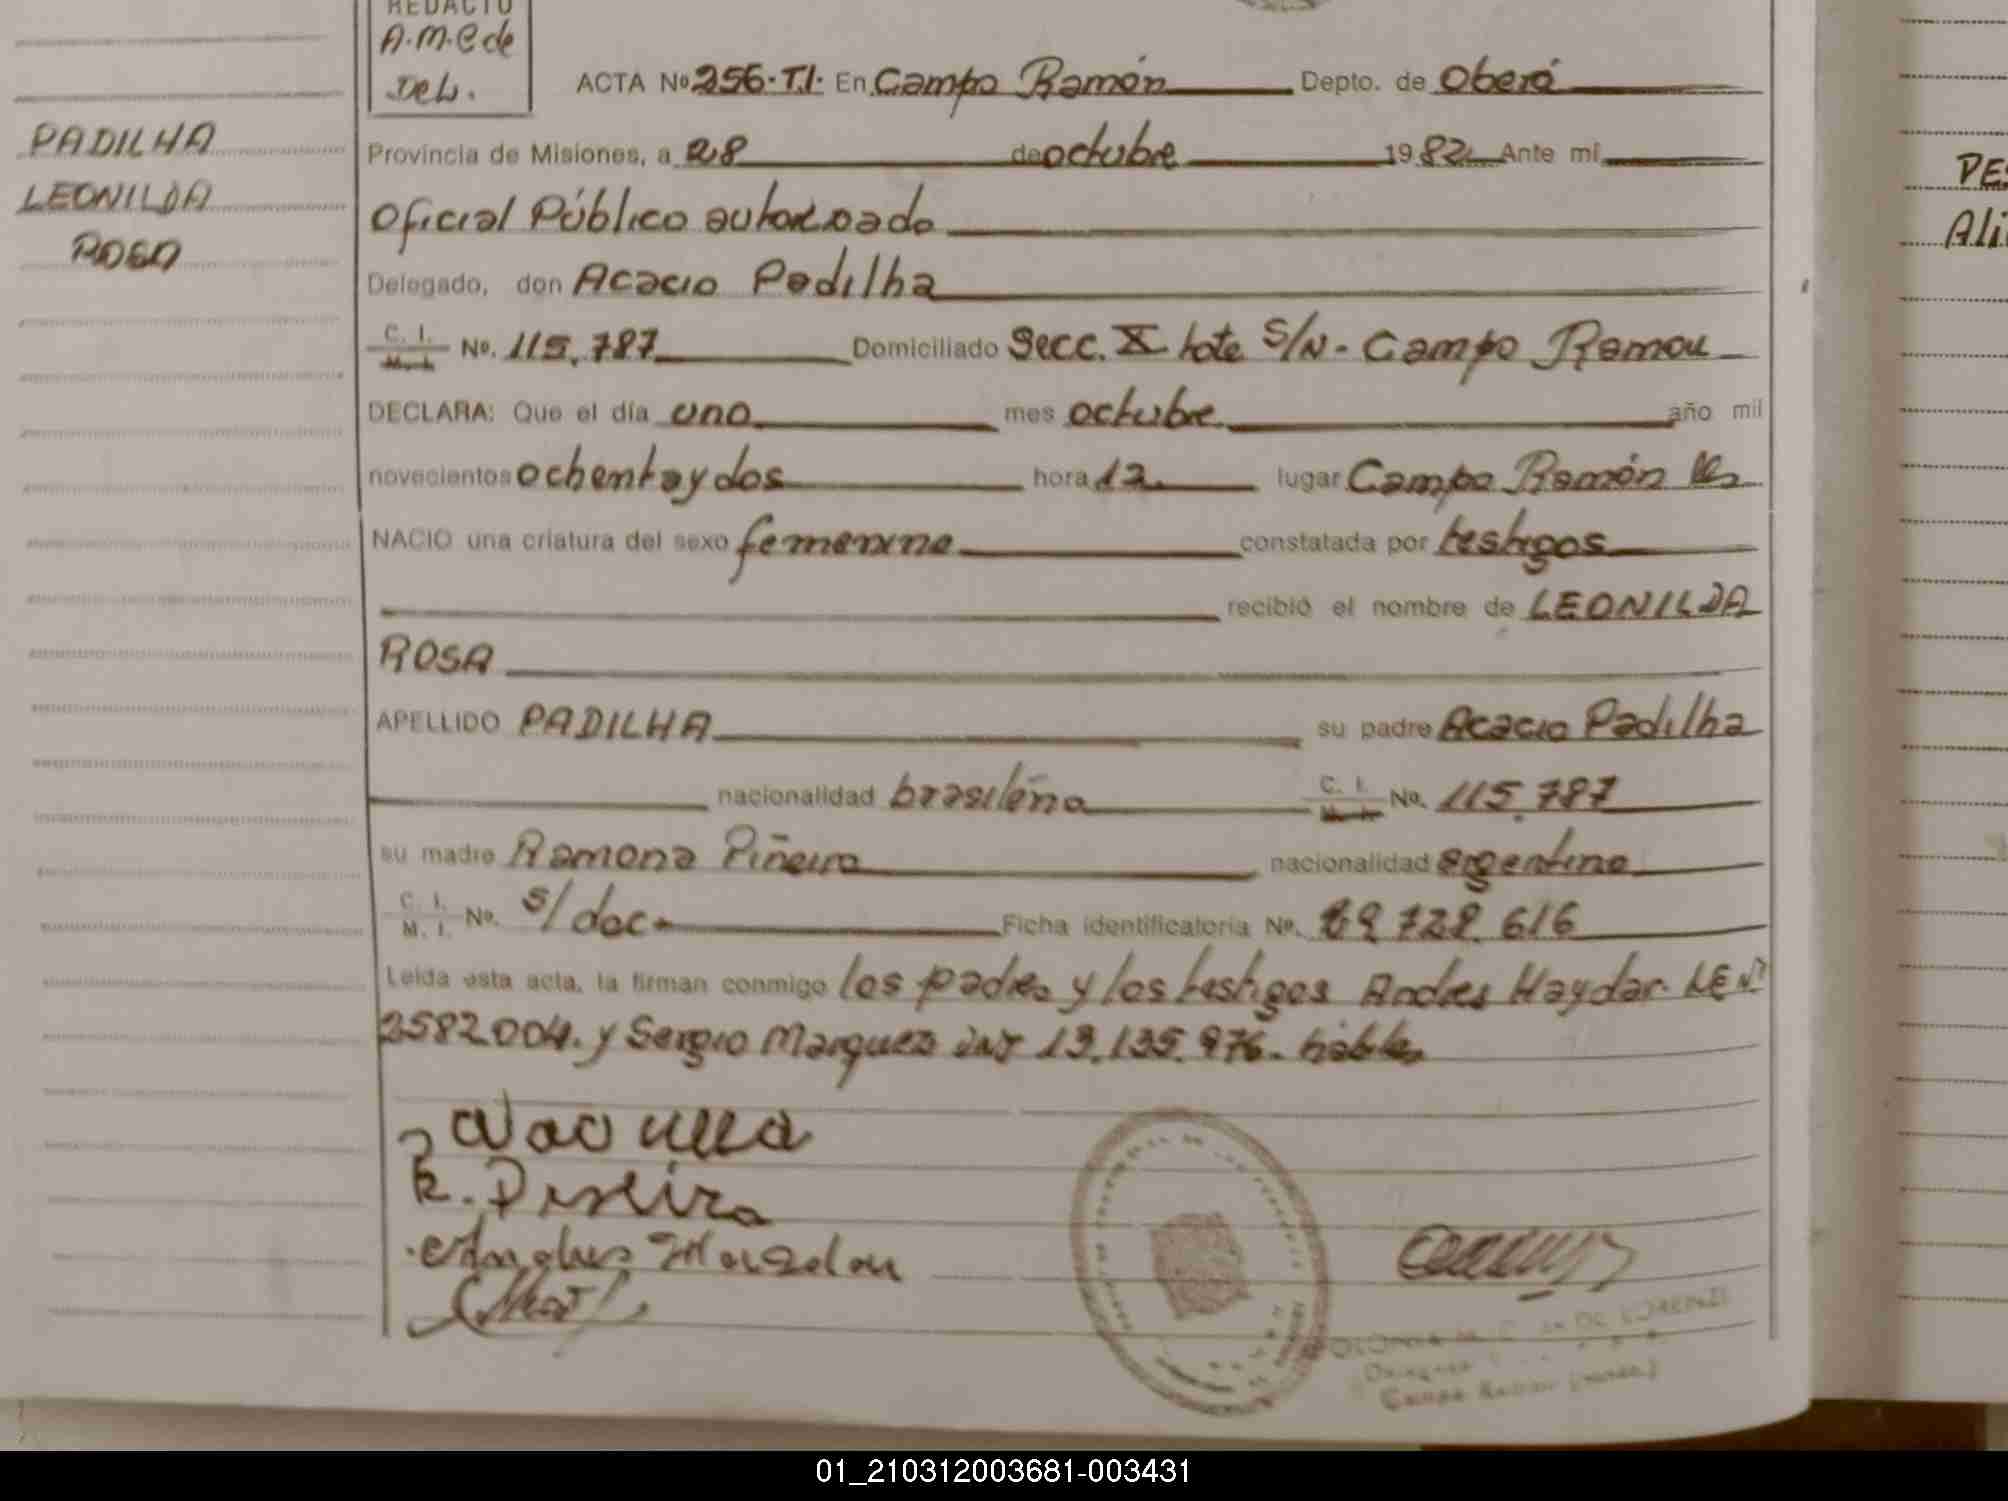 REDACTO
A.M.C de
DeL.
PADILHA
LEONILDA
ROSA
ACTA Nº 256.T.I. En Campo Ramón Depto. de Oberá
Provincia de Misiones, a 28 de octubre 1982 Ante mí
Oficial Público autorizado
Delegado, don Acacio Padilha
C. I. Nº. 115.787 Domiciliado Secc. X lote S/N - Campo Ramon
DECLARA: Que el día uno mes octubre año mil
novecientos ochenta y dos hora 12 lugar Campo Ramón
NACIO una criatura del sexo femenino constatada por testigos
recibió el nombre de LEONILDA
ROSA
APELLIDO PADILHA su padre Acacio Padilha
nacionalidad brasileña C. I. Nº. 115.787
su madre Ramona Piñeiro nacionalidad argentina
C. I. M. I. Nº. s/doc. Ficha identificatoria Nº. 29.728.616
Leída esta acta, la firman conmigo los padres y los testigos Andres Haydar LE Nº
2582004. y Sergio Marquez DNI 13.135.976. hábiles
DE LORENZI
Campo Ramón
DES
Ali
01_210312003681-003431